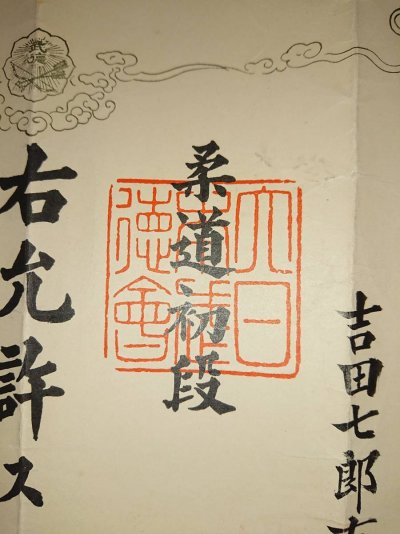 吉田七郎
柔道初段
大日
本武
徳會
右允許ス
武